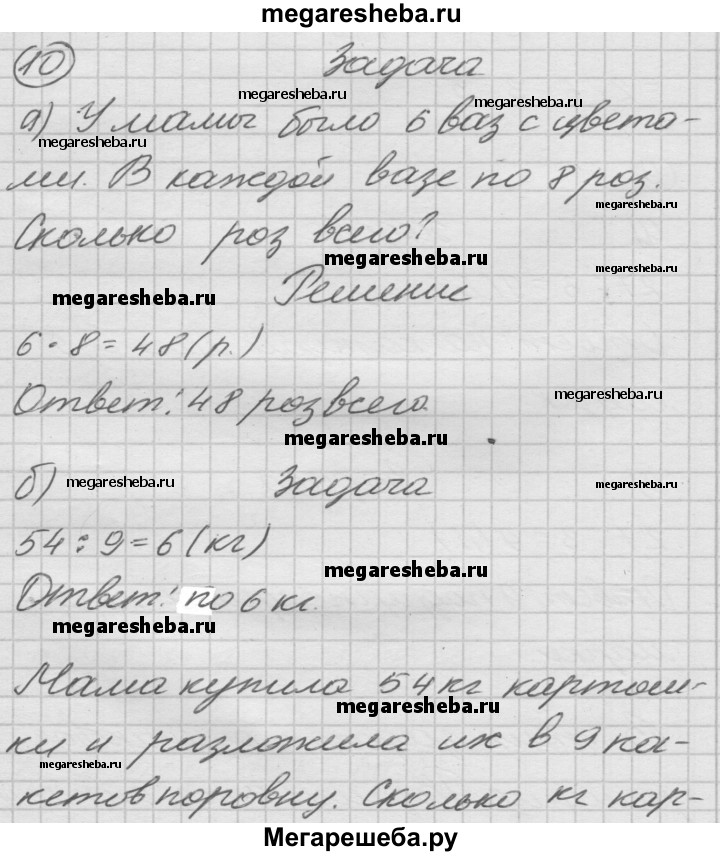 megaresheba.ru
10 Задача
megaresheba.ru
megaresheba.ru
а) У мамы было 6 ваз с цвета-
megaresheba.ru
ми. В каждой вазе по 8 роз.
megaresheba.ru
Сколько роз всего?
megaresheba.ru
megaresheba.ru
Решение
6 · 8 = 48 (р.)
megaresheba.ru
Ответ: 48 роз всего.
megaresheba.ru
б) megaresheba.ru Задача megaresheba.ru
54 : 9 = 6 (кг)
megaresheba.ru
Ответ: по 6 кг.
megaresheba.ru
Мама купила 54 кг картош-
megaresheba.ru
ки и разложила их в 9 па-
megaresheba.ru
кетов поровну. Сколько кг кар-
Мегарешеба.ру